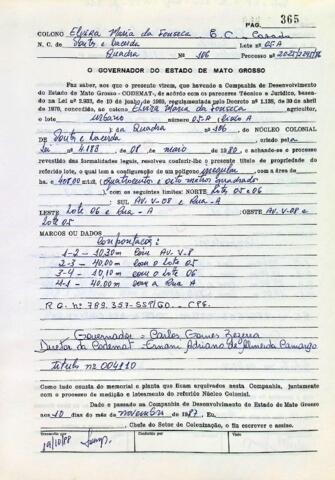 PÁG. 365
COLONO Elvira Maria da Fonseca, E.C. Casada
N. C. de Pontes e Lacerda Lote nº 05 A
Quadra Nº 106 Processo nº
O GOVERNADOR DO ESTADO DE MATO GROSSO
Faz saber, aos que o presente virem, que havendo a Companhia de Desenvolvimento
do Estado de Mato Grosso - CODEMAT, de acôrdo com os processos Técnico e Jurídico, basea-
do na Lei nº 2.933, de 19 de junho de 1969, regulamentada pelo Decreto nº 1.138, de 30 de abril
de 1970, concedido, ao colono Elvira Maria da Fonseca agricultor,
o lote urbano número 05.A
na Quadra nº 106, DO NÚCLEO COLONIAL
DE Pontes e Lacerda, criado pela
Lei nº 4.188, de 08 de maio de 1980, e achando-se o processo
revestido das formalidades legais, resolveu conferir-lhe o presente título de propriedade do
referido lote, o qual tem a configuração de um polígono irregular com a área de
408.00 mts2, Quatrocentos e oito metros quadrados
com as seguintes limites: NORTE Lote 05 e 06
SUL AV. V-08 e Rua-A
LESTE Lote 06 e Rua - A OESTE AV. V-08 e
Lote 05
MARCOS OU DADOS
Confrontações:
1-2 - 10,30m com AV. V-8
2-3 - 40,00m com o Lote 05
3-4 - 10,10m com o Lote 06
4-1 - 40,00m com a Rua A
R.G. nº 789.357-SSP/GO - CPF.
Governador = Carlos Gomes Bezerra
Diretor da Codemat = Ernani Adriano de Almeida Camargo
Título nº 004810
Como tudo consta do memorial e planta que ficam arquivados nesta Companhia, juntamente
com o processo de medição e loteamento do referido Núcleo Colonial.
Dado e passado na Companhia de Desenvolvimento do Estado de Mato Grosso
aos 10 dias do mês de novembro de 1987. Eu,
, Chefe do Setor de Colonização, o fiz escrever e assino.
Transcrito por
Conferido por
Visto
19/10/88